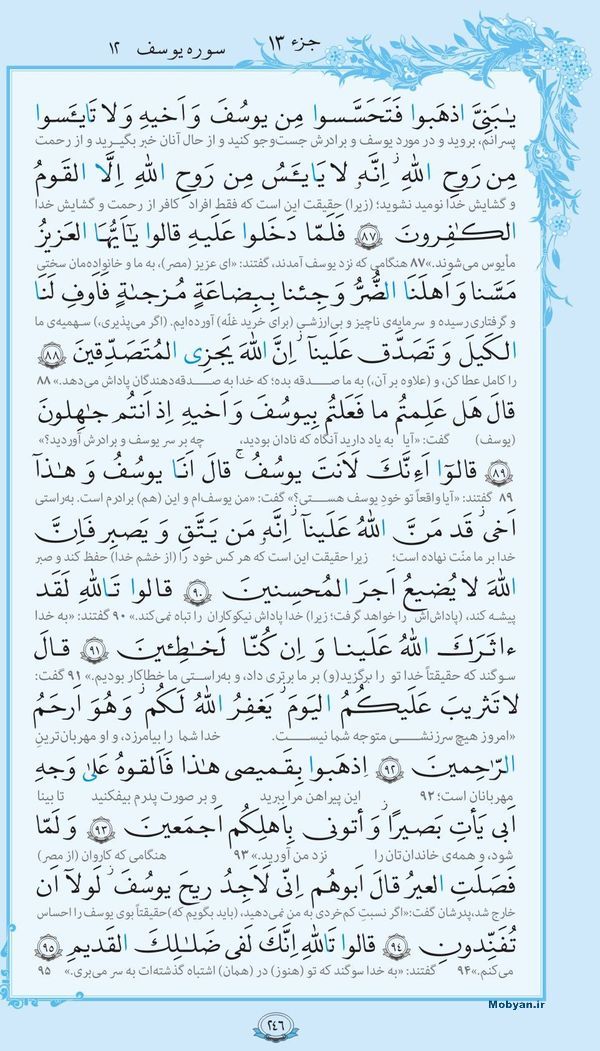 جزء ۱۳ سوره یوسف ۱۲
یٰبَنِیَّ اذهَبوا فَتَحَسَّسوا مِن یوسُفَ وَ اَخیهِ وَ لا تَایـَٔسوا
پسرانم، بروید و در مورد یوسف و برادرش جست‌وجو کنید و از حال آنان خبر بگیرید و از رحمت
مِن رَوحِ اللهِ ۖ اِنَّهُ لا یَایـَٔسُ مِن رَوحِ اللهِ اِلَّا القَومُ
و گشایش خدا نومید نشوید؛ (زیرا) حقیقت این است که فقط افراد کافر از رحمت و گشایش خدا
الکٰفِرونَ ﴿۸۷﴾ فَلَمّا دَخَلوا عَلَیهِ قالوا یٰاَیُّهَا العَزیزُ
مأیوس می‌شوند.» ۸۷ هنگامی که نزد یوسف آمدند، گفتند: «ای عزیز (مصر)، به ما و خانواده‌مان سختی
مَسَّنا وَ اَهلَنَا الضُّرُّ وَ جِئنا بِبِضاعَةٍ مُزجىٰةٍ فَاَوفِ لَنَا
و گرفتاری رسیده و سرمایه‌ی ناچیز و بی‌ارزشی (برای خرید غلّه) آورده‌ایم. (اگر می‌پذیری،) سهمیه‌ی ما
الکَیلَ وَ تَصَدَّق عَلَینا ۖ اِنَّ اللهَ یَجزِی المُتَصَدِّقینَ ﴿۸۸﴾
را کامل عطا کن، و (علاوه بر آن،) به ما صدقه بده؛ که خدا به صدقه‌دهندگان پاداش می‌دهد.» ۸۸
قالَ هَل عَلِمتُم ما فَعَلتُم بِیوسُفَ وَ اَخیهِ اِذ اَنتُم جٰهِلونَ
(یوسف) گفت: «آیا به یاد دارید آنگاه که نادان بودید، چه بر سر یوسف و برادرش آوردید؟»
﴿۸۹﴾ قالوا اَءِنَّکَ لَاَنتَ یوسُفُ ۖ قالَ اَنَا یوسُفُ وَ هٰذا
۸۹ گفتند: «آیا واقعاً تو خودِ یوسف هستی؟» گفت: «من یوسف‌ام و این (هم) برادرم است. به‌راستی
اَخی ۖ قَد مَنَّ اللهُ عَلَینا ۖ اِنَّهُ مَن یَتَّقِ وَ یَصبِر فَاِنَّ
خدا بر ما منّت نهاده است؛ زیرا حقیقت این است که هر کس خود را (از خشم خدا) حفظ کند و صبر
اللهَ لا یُضیعُ اَجرَ المُحسِنینَ ﴿۹۰﴾ قالوا تَاللهِ لَقَد
پیشه کند، (پاداش‌اش را خواهد گرفت؛ زیرا) خدا پاداش نیکوکاران را تباه نمی‌کند.» ۹۰ گفتند: «به خدا
ءاثَرَکَ اللهُ عَلَینا وَ اِن کُنّا لَخٰطِـٔینَ ﴿۹۱﴾ قالَ
سوگند که حقیقتاً خدا تو را برگزید (و) بر ما برتری داد، و به‌راستی ما خطاکار بودیم.» ۹۱ گفت:
لا تَثریبَ عَلَیکُمُ الیَومَ ۖ یَغفِرُ اللهُ لَکُم ۖ وَ هُوَ اَرحَمُ
«امروز هیچ سرزنشی متوجه شما نیست. خدا شما را بیامرزد، و او مهربان‌ترینِ
الرّٰحِمینَ ﴿۹۲﴾ اِذهَبوا بِقَمیصی هٰذا فَاَلقوهُ عَلیٰ وَجهِ
مهربانان است؛ ۹۲ این پیراهن مرا ببرید و بر صورت پدرم بیفکنید تا بینا
اَبی یَأتِ بَصیرًا ۖ وَ أتونی بِاَهلِکُم اَجمَعینَ ﴿۹۳﴾ وَ لَمّا
شود، و همه‌ی خاندان‌تان را نزد من آورید.» ۹۳ هنگامی که کاروان (از مصر)
فَصَلَتِ العیرُ قالَ اَبوهُم اِنّی لَاَجِدُ ریحَ یوسُفَ ۖ لَولا اَن
خارج شد، پدرشان گفت: «اگر نسبتِ کم‌خردی به من نمی‌دهید، (باید بگویم که) حقیقتاً بوی یوسف را احساس
تُفَنِّدونِ ﴿۹۴﴾ قالوا تَاللهِ اِنَّکَ لَفی ضَلٰلِکَ القَدیمِ ﴿۹۵﴾
می‌کنم.» ۹۴ گفتند: «به خدا سوگند که تو (هنوز) در (همان) اشتباه گذشته‌ات به سر می‌بری.» ۹۵
Mobyan.ir
۲۴۶